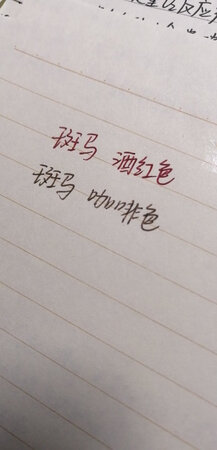 反应
斑马 酒红色
斑马 咖啡色